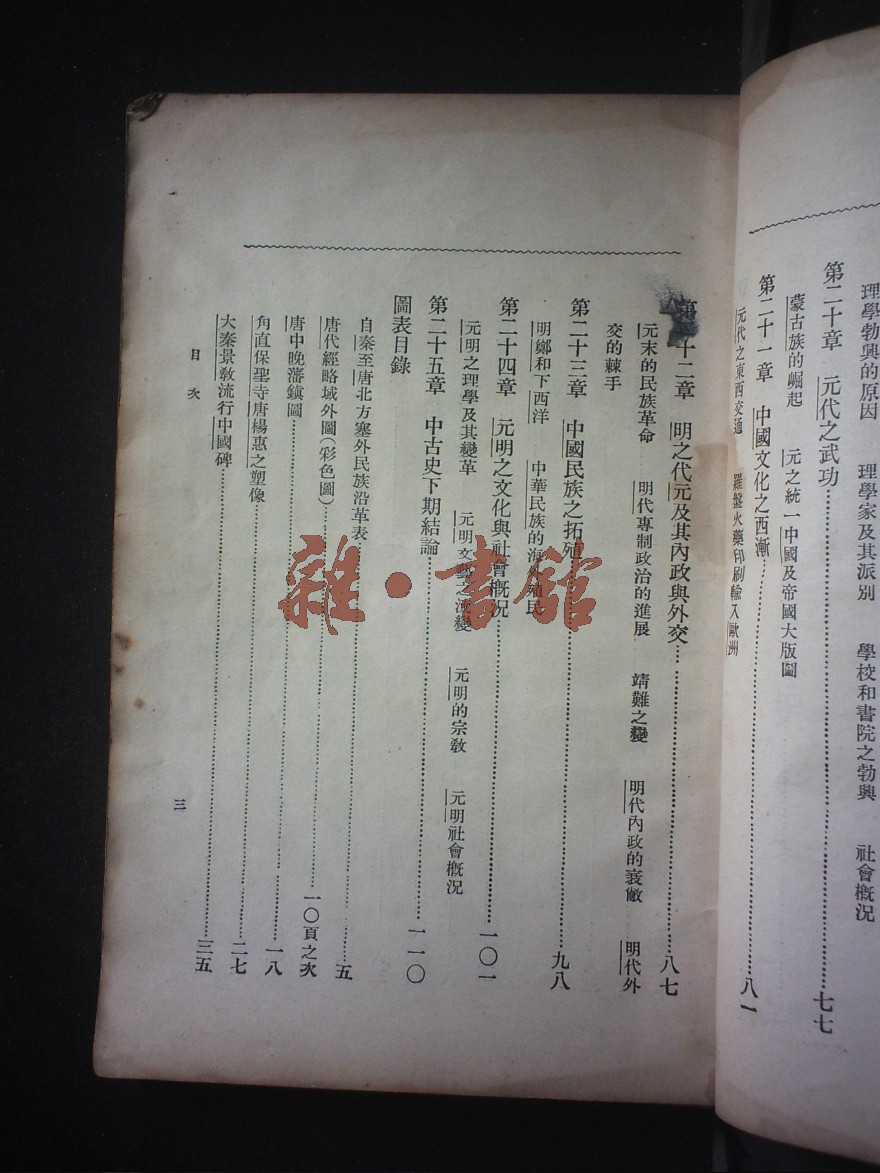 理學勃興的原因　理學家及其派別　學校和書院之勃興　社會概況
第二十章　元代之武功……七七
蒙古族的崛起　元之統一中國及帝國大版圖
第二十一章　中國文化之西漸……八一
元代之東西交通　羅盤火藥印刷輸入歐洲
十二章　明之代元及其內政與外交……八七
元末的民族革命　明代專制政治的進展　靖難之變　明代內政的衰敝　明代外
交的棘手
第二十三章　中國民族之拓殖……九八
明鄭和下西洋　中華民族的海外殖民
第二十四章　元明之文化與社會概況……一〇一
元明之理學及其變革　元明文之變　元明的宗教　元明社會概況
第二十五章　中古史下期結論……一一〇
圖表目錄
自秦至唐北方塞外民族沿革表……五
唐代經略域外圖(彩色圖)……一〇頁之次
唐中晚藩鎮圖……一八
角直保聖寺唐楊惠之塑像……二七
大秦景教流行中國碑……三五
目次
三
雜·書館